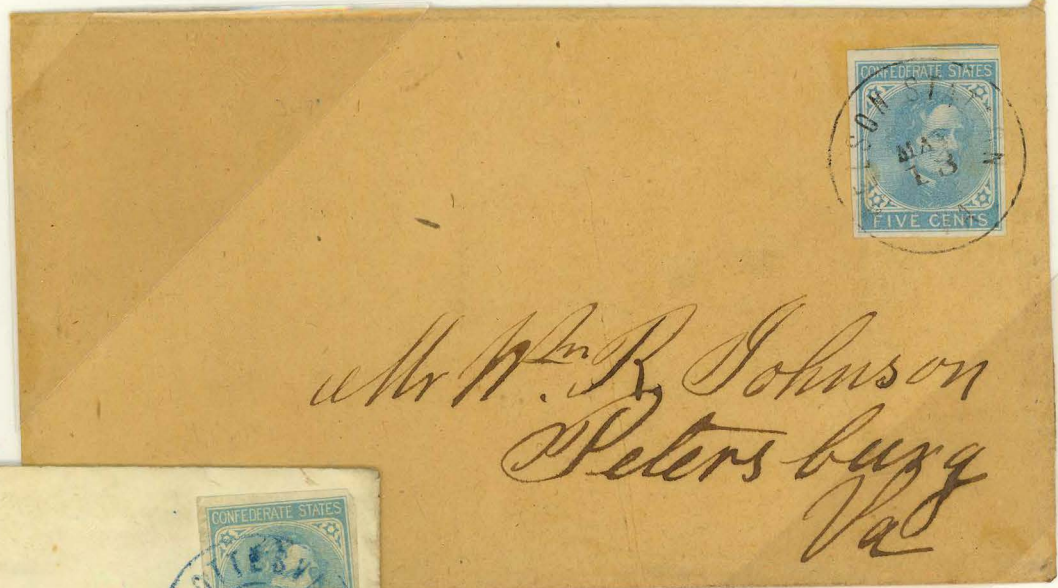 CONFEDERATE STATES
MAY
13
FIVE CENTS
Mr Wm. R. Johnson
Petersburg
Va
CONFEDERATE STATES